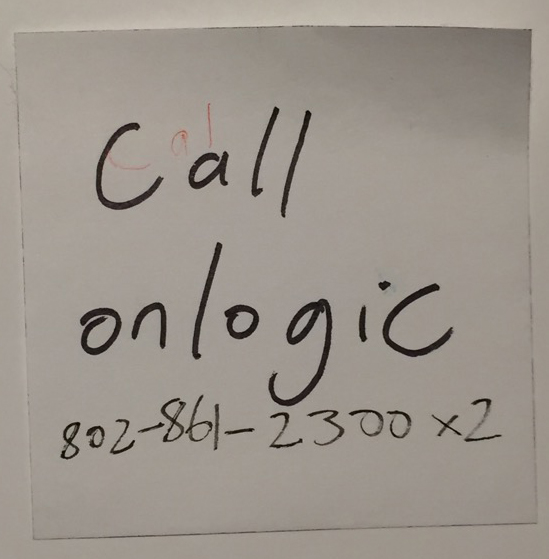 Call
onlogic
802-861-2300 x2